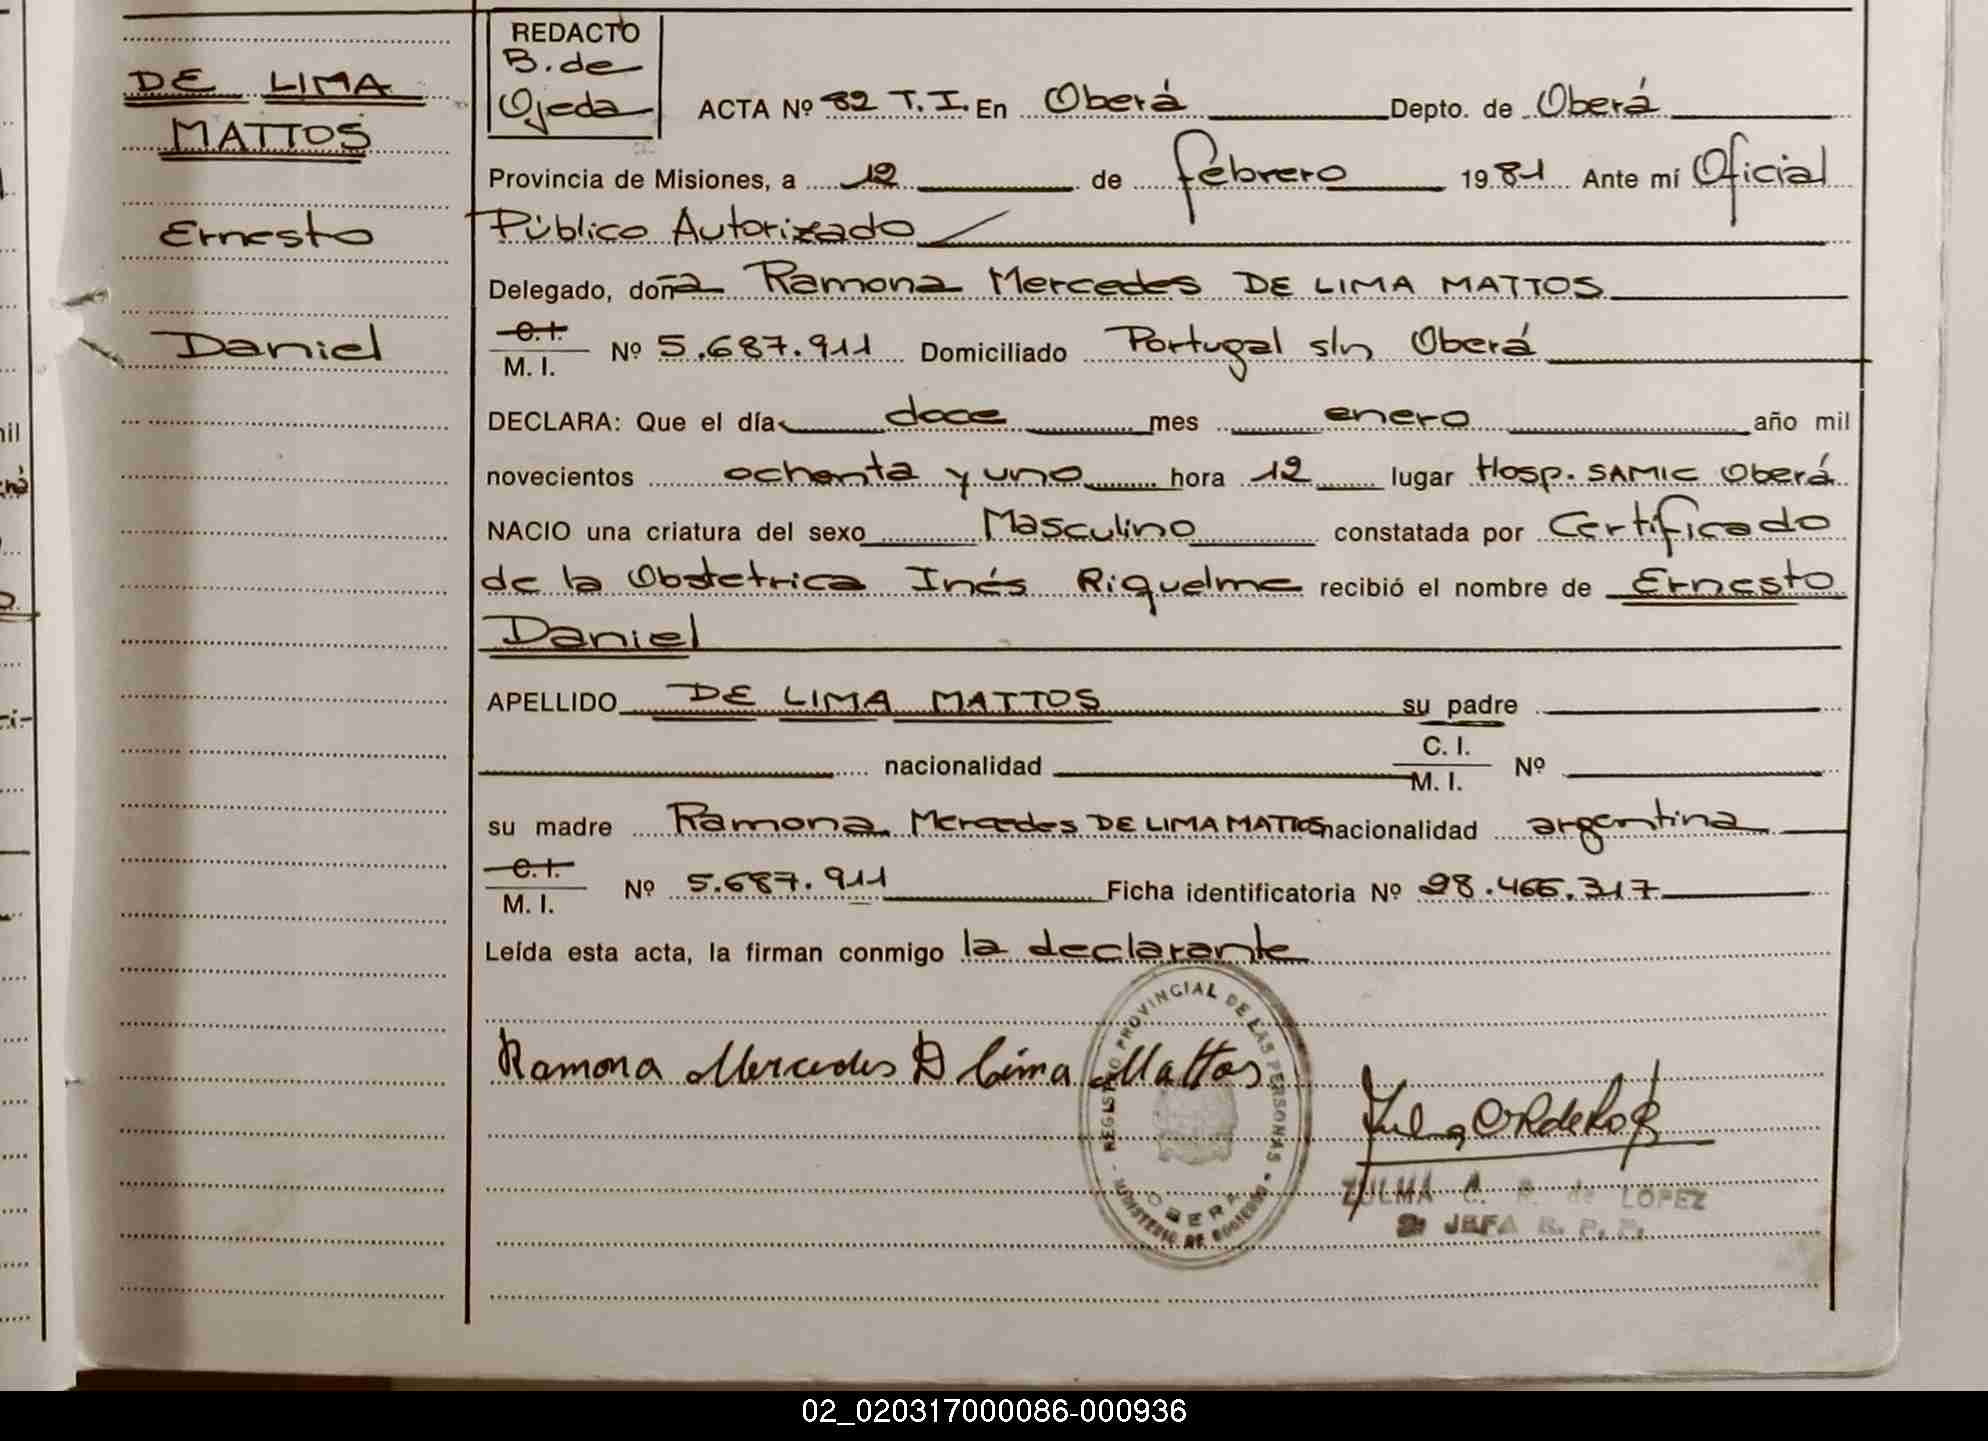 DE LIMA
MATTOS
Ernesto
Daniel
REDACTO
B. de
Ojeda
ACTA Nº 82 T. I. En Oberá Depto. de Oberá
Provincia de Misiones, a 12 de febrero 1981 Ante mí Oficial
Público Autorizado
Delegado, doña Ramona Mercedes DE LIMA MATTOS
C. I.
M. I. Nº 5.687.911 Domiciliado Portugal s/n Oberá
DECLARA: Que el día doce mes enero año mil
novecientos ochenta y uno hora 12 lugar Hosp. SAMIC Oberá
NACIO una criatura del sexo Masculino constatada por Certificado
de la Obstetrica Inés Riquelme recibió el nombre de Ernesto
Daniel
APELLIDO DE LIMA MATTOS su padre
nacionalidad C. I. M. I. Nº
su madre Ramona Mercedes DE LIMA MATTOS nacionalidad argentina
C. I.
M. I. Nº 5.687.911 Ficha identificatoria Nº 28.466.317
Leída esta acta, la firman conmigo la declarante
Ramona Mercedes D Lima Mattos
REGISTRO PROVINCIAL DE LAS PERSONAS
OBERA
MINISTERIO DE GOBIERNO
ZULMA C. R. de LOPEZ
JEFA R. P. P.
02_020317000086-000936